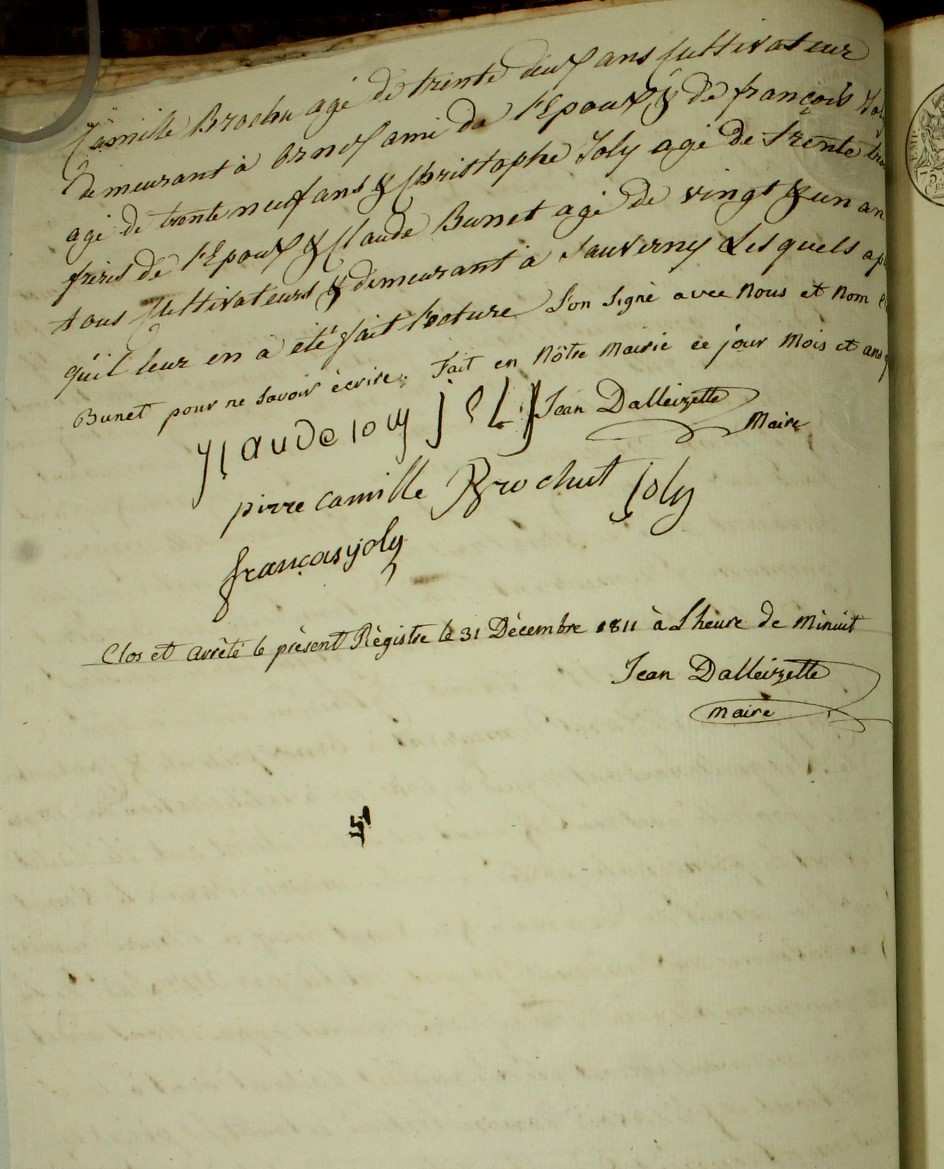 Camille Brochu agé de trente deux ans Cultivateur
demeurant à Ornex ami de l'Epoux & de françois
agé de trente neuf ans & Christophe Joly agé de trente
frères de l'Epoux & Claude Bunet agé de vingt & un an
tous Cultivateurs & demeurant à Sauverny Lesquels
qu'il leur en à été fait lecture Son Signé avec Nous et Nom
Bunet pour ne savoir écrire. Fait en Nôtre Mairie ce jour Mois et ans
Claude ioly joly Jean Dalleizette
Maire
pirre camille Brochut joly
françois joly
Clos et arrêté le présent Règistre le 31 Décembre 1811 à L'heure de Minuit
Jean Dalleizette
Maire